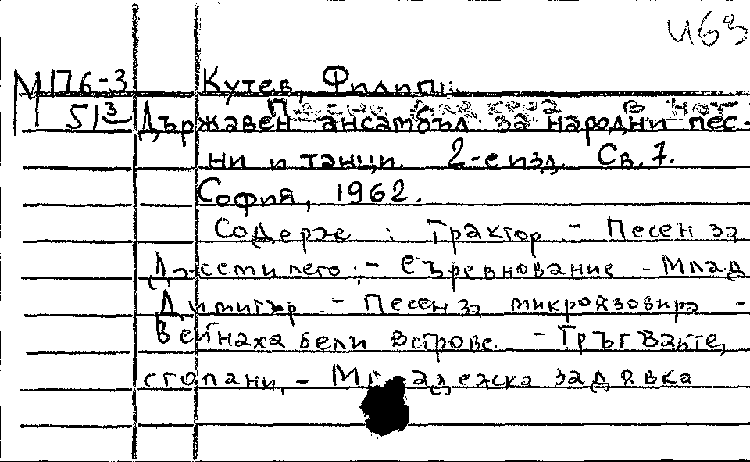 И63
М176-3 Кутев, Филип.
51 3 Държавен ансамбъл за народни пес-
ни и танци. 2-е изд. Св. 7.
София, 1962.
Содерж.: Трактор. - Песен за
Джемилето. - Съревнование - Млад
Димитър - Песен за микроязовира -
Вейнаха бели ветрове. - Тръгвайте,
стопани, - Младежка задявка